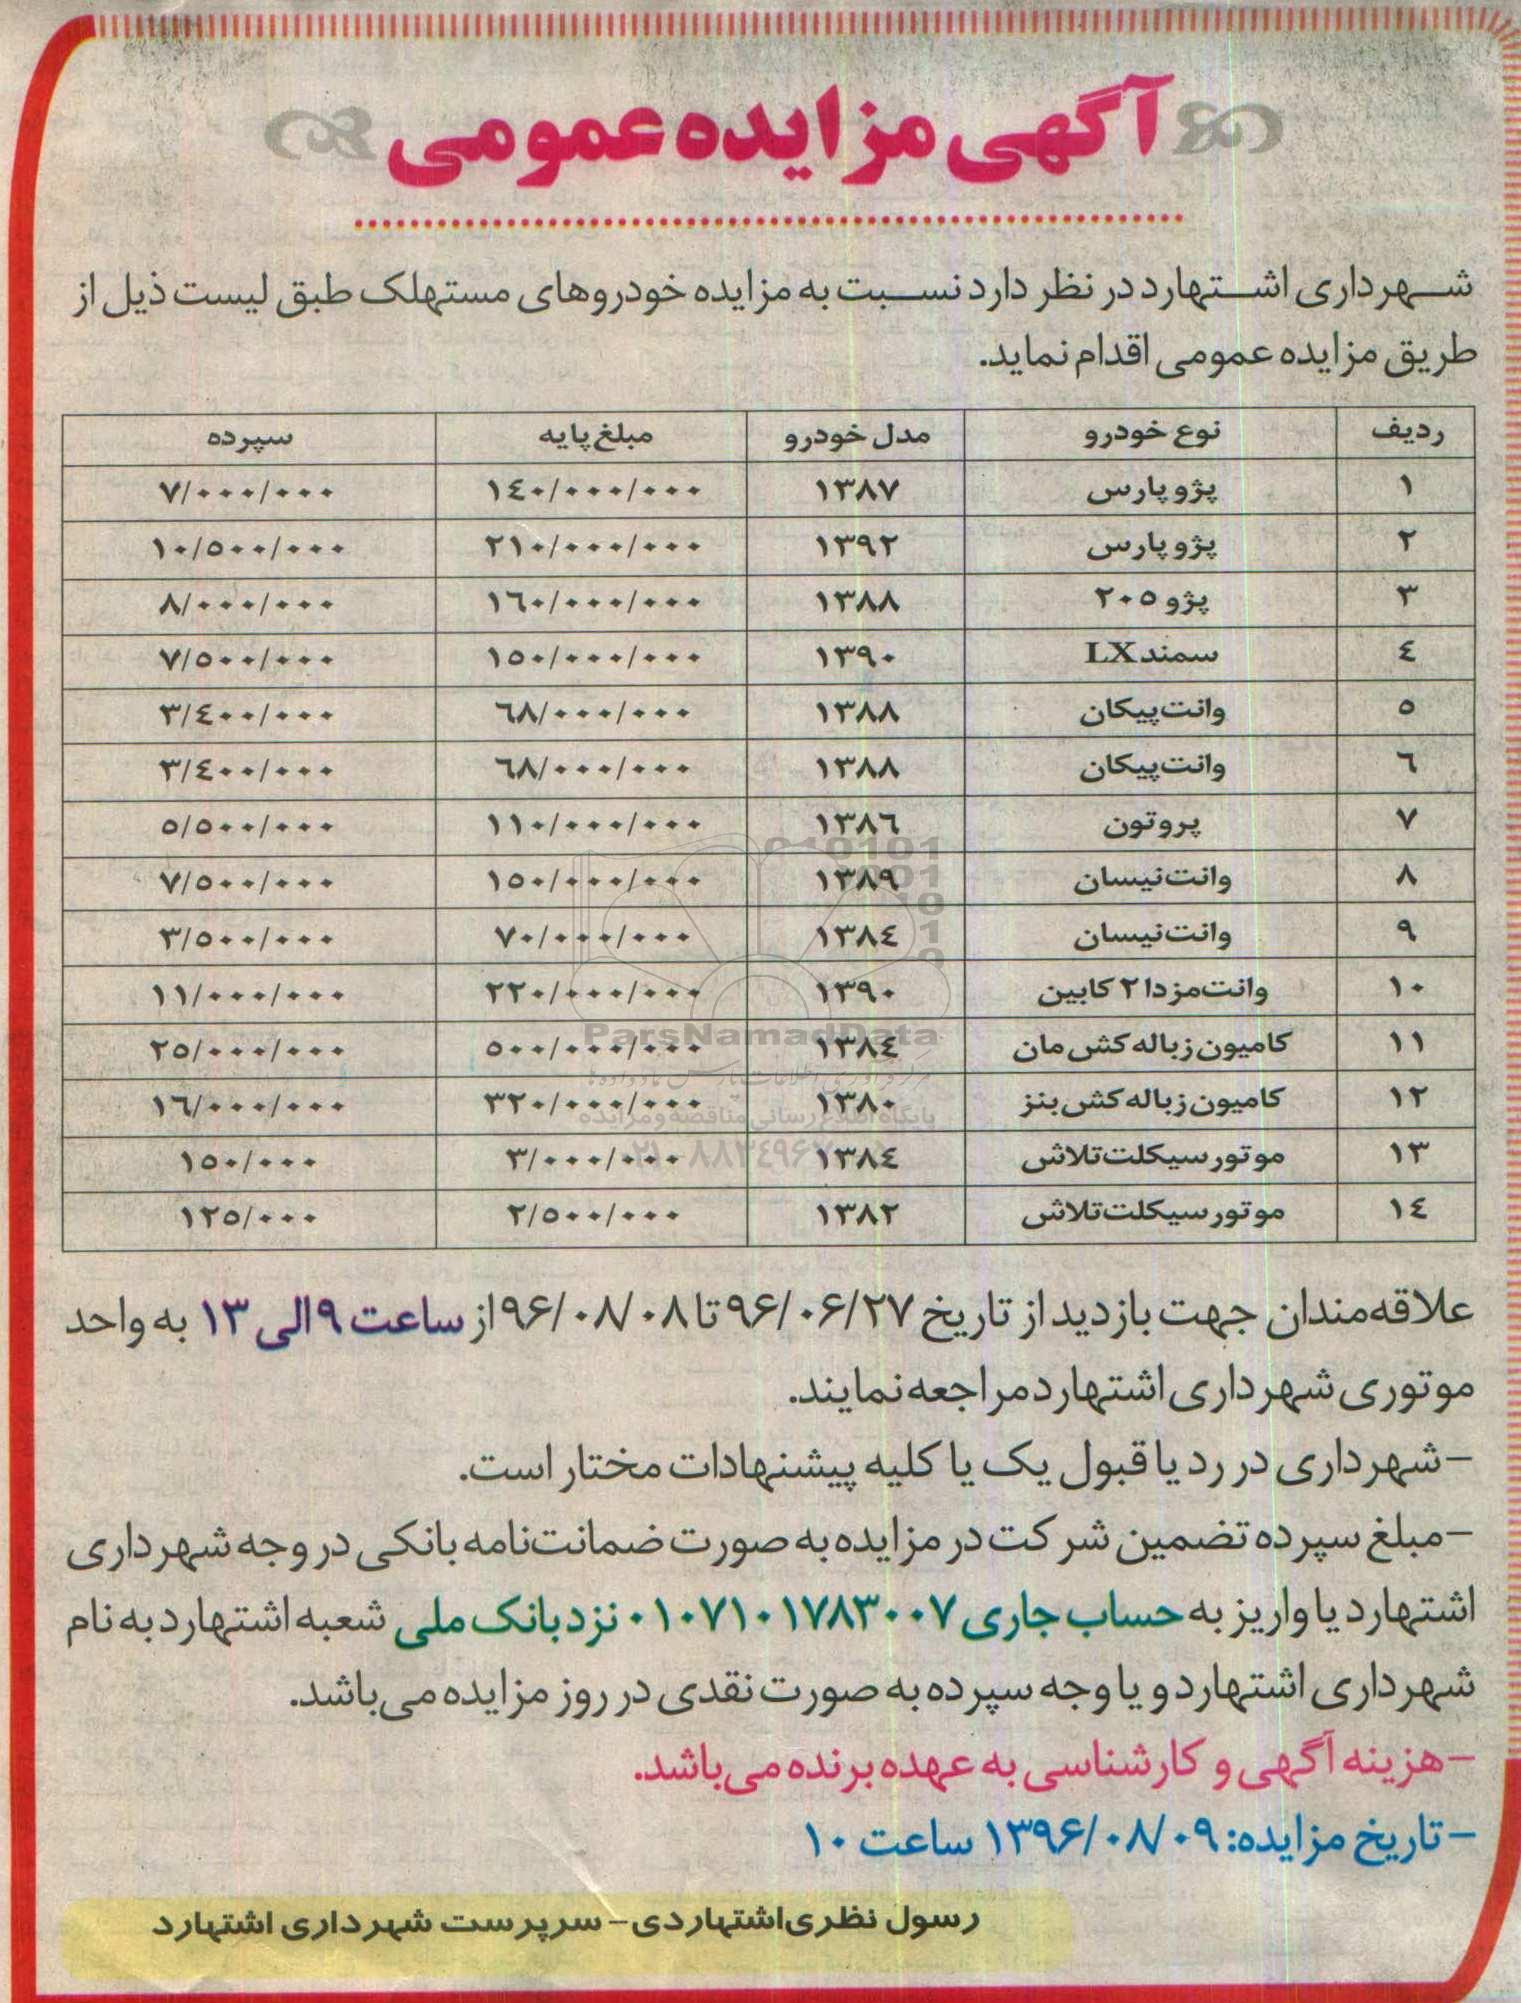 آگهی مزایده عمومی
شهرداری اشتهارد در نظر دارد نسبت به مزایده خودروهای مستهلک طبق لیست ذیل از
طریق مزایده عمومی اقدام نماید.
ردیف نوع خودرو مدل خودرو مبلغ پایه سپرده
۱ پژو پارس ۱۳۸۷ ۱۴۰/۰۰۰/۰۰۰ ۷/۰۰۰/۰۰۰
۲ پژو پارس ۱۳۹۲ ۲۱۰/۰۰۰/۰۰۰ ۱۰/۵۰۰/۰۰۰
۳ پژو ۲۰۵ ۱۳۸۸ ۱۶۰/۰۰۰/۰۰۰ ۸/۰۰۰/۰۰۰
۴ سمند LX ۱۳۹۰ ۱۵۰/۰۰۰/۰۰۰ ۷/۵۰۰/۰۰۰
۵ وانت پیکان ۱۳۸۸ ۶۸/۰۰۰/۰۰۰ ۳/۴۰۰/۰۰۰
۶ وانت پیکان ۱۳۸۸ ۶۸/۰۰۰/۰۰۰ ۳/۴۰۰/۰۰۰
۷ پروتون ۱۳۸۶ ۱۱۰/۰۰۰/۰۰۰ ۵/۵۰۰/۰۰۰
۸ وانت نیسان ۱۳۸۹ ۱۵۰/۰۰۰/۰۰۰ ۷/۵۰۰/۰۰۰
۹ وانت نیسان ۱۳۸۴ ۷۰/۰۰۰/۰۰۰ ۳/۵۰۰/۰۰۰
۱۰ وانت مزدا ۲ کابین ۱۳۹۰ ۲۲۰/۰۰۰/۰۰۰ ۱۱/۰۰۰/۰۰۰
۱۱ کامیون زباله کش مان ۱۳۸۴ ۵۰۰/۰۰۰/۰۰۰ ۲۵/۰۰۰/۰۰۰
۱۲ کامیون زباله کش بنز ۱۳۸۰ ۳۲۰/۰۰۰/۰۰۰ ۱۶/۰۰۰/۰۰۰
۱۳ موتور سیکلت تلاش ۱۳۸۴ ۳/۰۰۰/۰۰۰ ۱۵۰/۰۰۰
۱۴ موتور سیکلت تلاش ۱۳۸۲ ۲/۵۰۰/۰۰۰ ۱۲۵/۰۰۰
ParsNamadData
پایگاه اطلاع رسانی مناقصه و مزایده
علاقه‌مندان جهت بازدید از تاریخ ۹۶/۰۶/۲۷ تا ۹۶/۰۸/۰۸ از ساعت ۹ الی ۱۳ به واحد
موتوری شهرداری اشتهارد مراجعه نمایند.
-شهرداری در رد یا قبول یک یا کلیه پیشنهادات مختار است.
-مبلغ سپرده تضمین شرکت در مزایده به صورت ضمانت‌نامه بانکی در وجه شهرداری
اشتهارد یا واریز به حساب جاری ۰۱۰۷۱۰۱۷۸۳۰۰۷ نزد بانک ملی شعبه اشتهارد به نام
شهرداری اشتهارد و یا وجه سپرده به صورت نقدی در روز مزایده می‌باشد.
-هزینه آگهی و کارشناسی به عهده برنده می‌باشد.
-تاریخ مزایده: ۱۳۹۶/۰۸/۰۹ ساعت ۱۰
رسول نظری‌اشتهاردی- سرپرست شهرداری اشتهارد